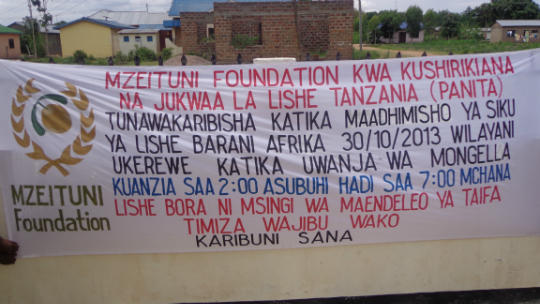 MZEITUNI FOUNDATION KWA KUSHIRIKIANA
NA JUKWAA LA LISHE TANZANIA (PANITA)
TUNAWAKARIBISHA KATIKA MAADHIMISHO YA SIKU
YA LISHE BARANI AFRIKA 30/10/2013 WILAYANI
UKEREWE KATIKA UWANJA WA MONGELLA
KUANZIA SAA 2:00 ASUBUHI HADI SAA 7:00 MCHANA
LISHE BORA NI MSINGI WA MAENDELEO YA TAIFA
TIMIZA WAJIBU WAKO
KARIBUNI SANA
MZEITUNI
Foundation